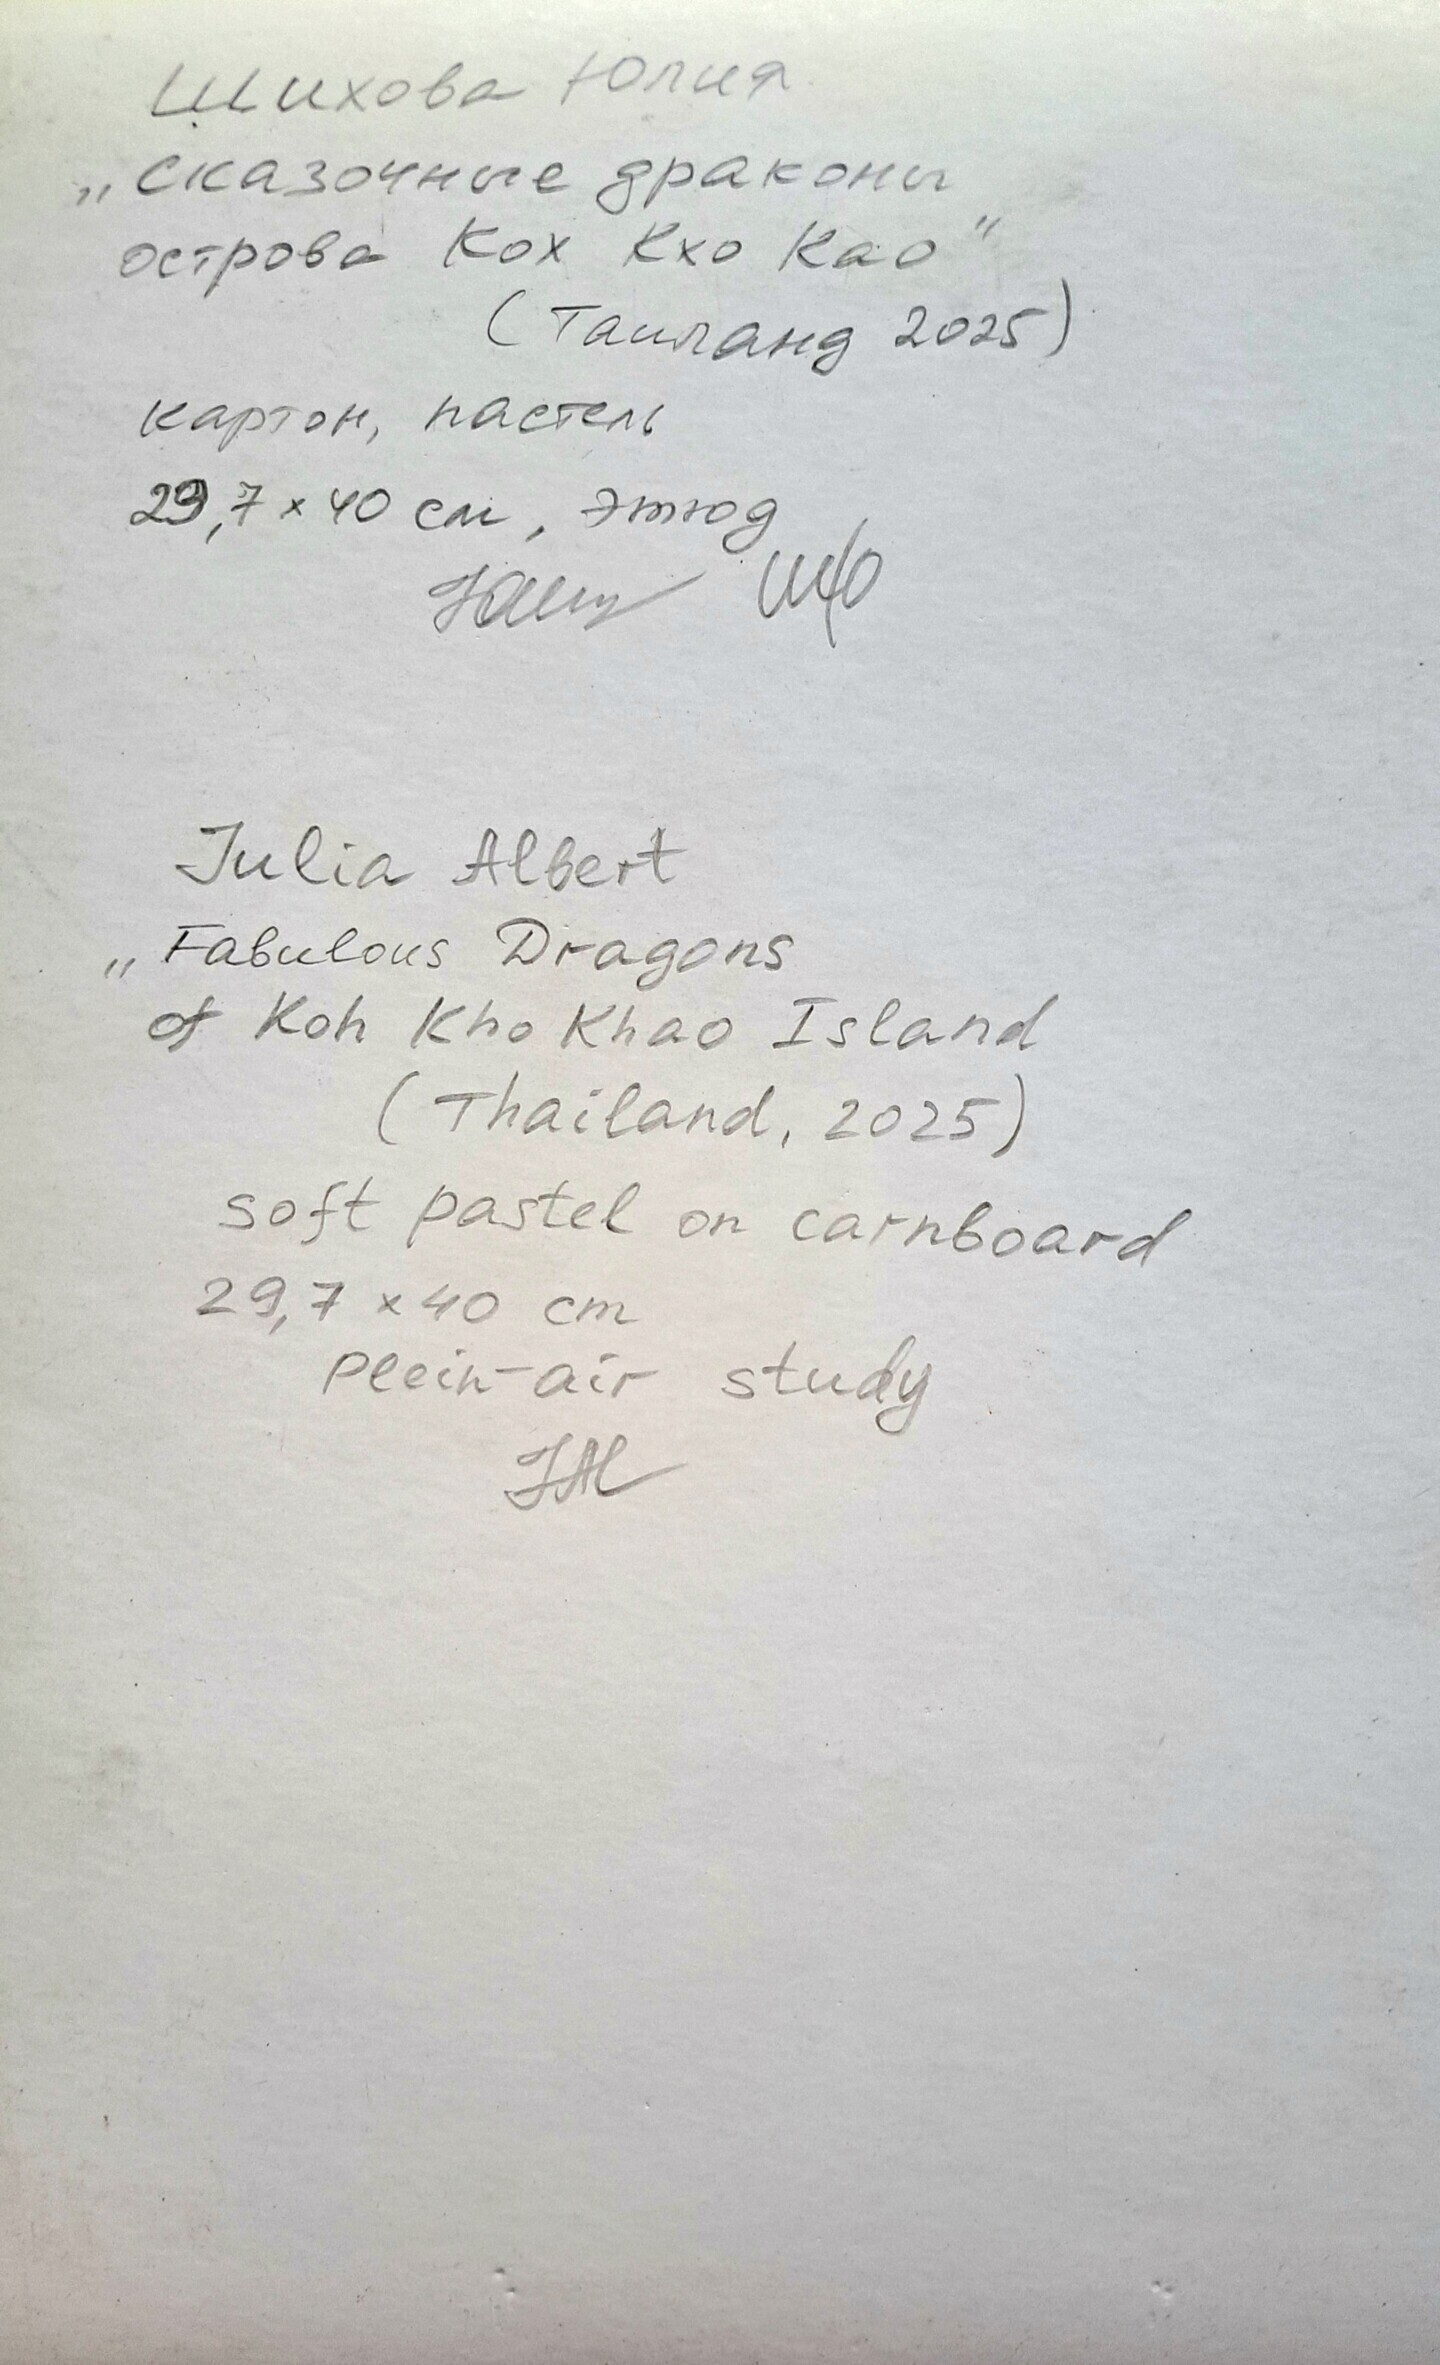 Шихова Юлия
„сказочные драконы
острова Кох Кхо Као"
(Таиланд 2025)
картон, пастель
29,7 × 40 см, этюд
Julia Albert
„Fabulous Dragons
of Koh Kho Khao Island
(Thailand, 2025)
soft pastel on carnboard
29,7 × 40 cm
plein-air study